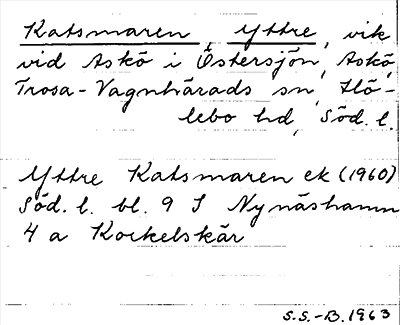 Katsmaren, Yttre, vik
vid Askö i Östersjön, Askö,
Trosa-Vagnhärads sn, Hö-
lebo hd, Söd. l.
Yttre Katsmaren ek (1960)
Söd. l. bl. 9 I Nynäshamn
4 a Kockelskär
S.S.-B. 1963